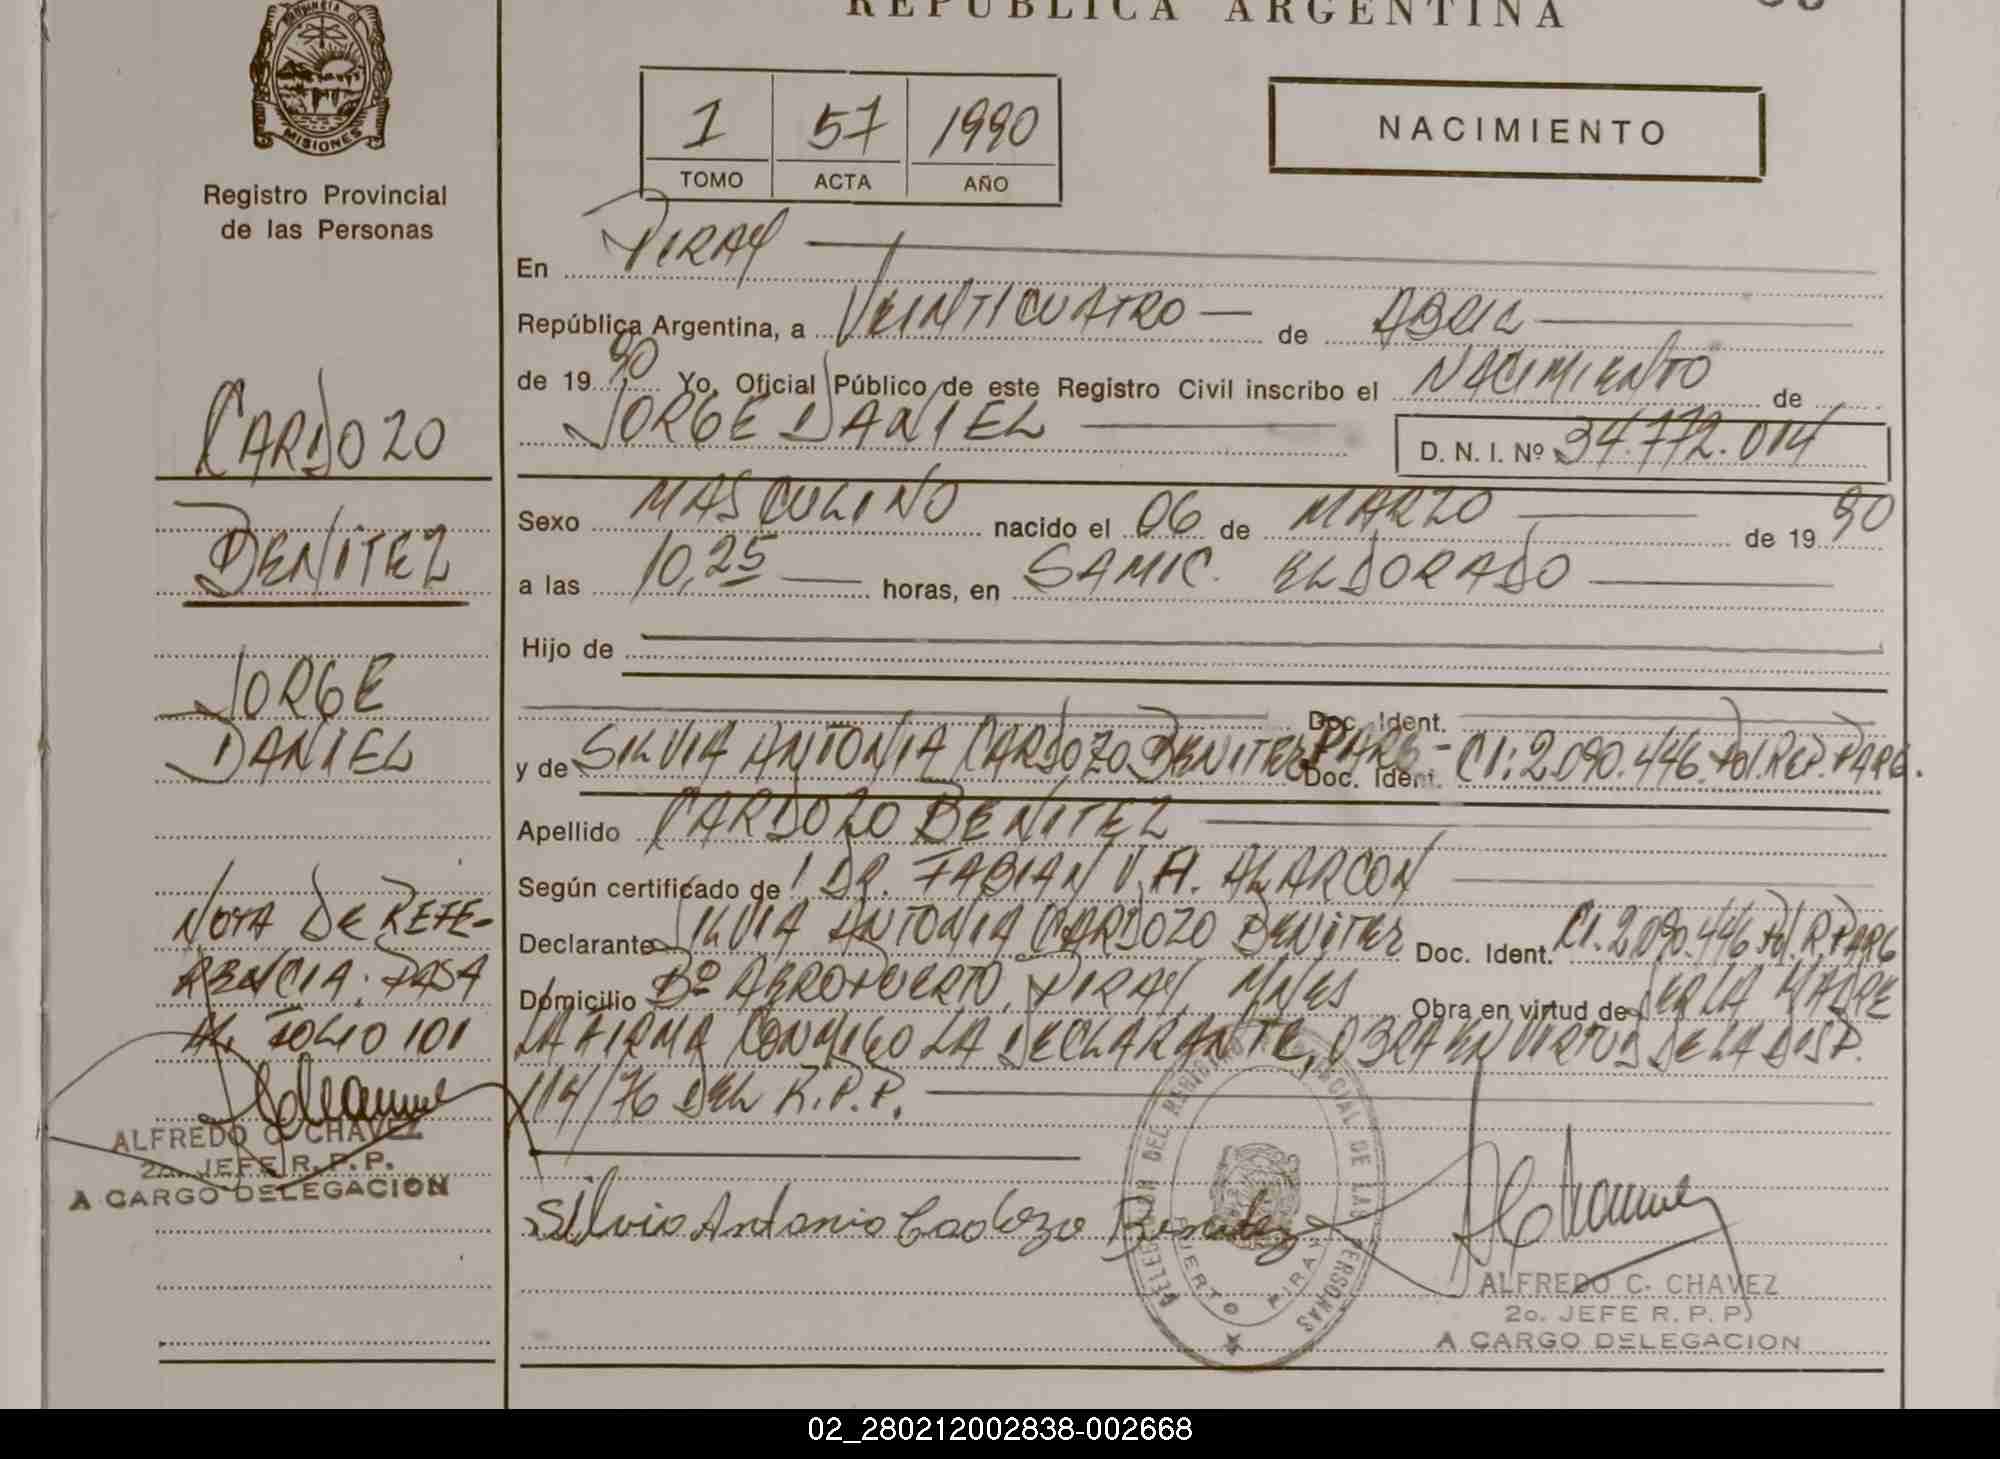 REPUBLICA ARGENTINA
PROVINCIA DE
MISIONES
Registro Provincial
de las Personas
1 57 1990
TOMO ACTA AÑO
NACIMIENTO
En PIRAY
República Argentina, a VEINTICUATRO de ABRIL
de 19 90 Yo, Oficial Público de este Registro Civil inscribo el NACIMIENTO de
JORGE DANIEL D. N. I. Nº 34.772.014
Sexo MASCULINO nacido el 06 de MARZO de 19 90
a las 10,25 horas, en SAMIC. ELDORADO
Hijo de
Doc. Ident.
y de SILVIA ANTONIA CARDOZO BENITEZ PARG - Doc. Ident. CI: 2.090.446 Pol. REP. PARG.
Apellido CARDOZO BENITEZ
Según certificado de DR. FABIAN V. A. ALARCON
Declarante SILVIA ANTONIA CARDOZO BENITEZ Doc. Ident. CI. 2.090.446 Pol. R. PARG
Domicilio Bº AEROPUERTO, PIRAY, MNES Obra en virtud de SER LA MADRE
LA FIRMA CONMIGO LA DECLARANTE, OBRA EN VIRTUD DE LA DISP.
114/76 DEL R.P.P.
Silvia Antonia Cardozo Benitez
DELEGACION DEL REGISTRO PROVINCIAL DE LAS PERSONAS
PUERTO PIRAY
ALFREDO C. CHAVEZ
2o. JEFE R. P. P.
A CARGO DELEGACION
CARDOZO
BENITEZ
JORGE
DANIEL
NOTA DE REFE-
RENCIA: PASA
AL FOLIO 101
ALFREDO C. CHAVEZ
2o. JEFE R. P. P.
A CARGO DELEGACION
02_280212002838-002668